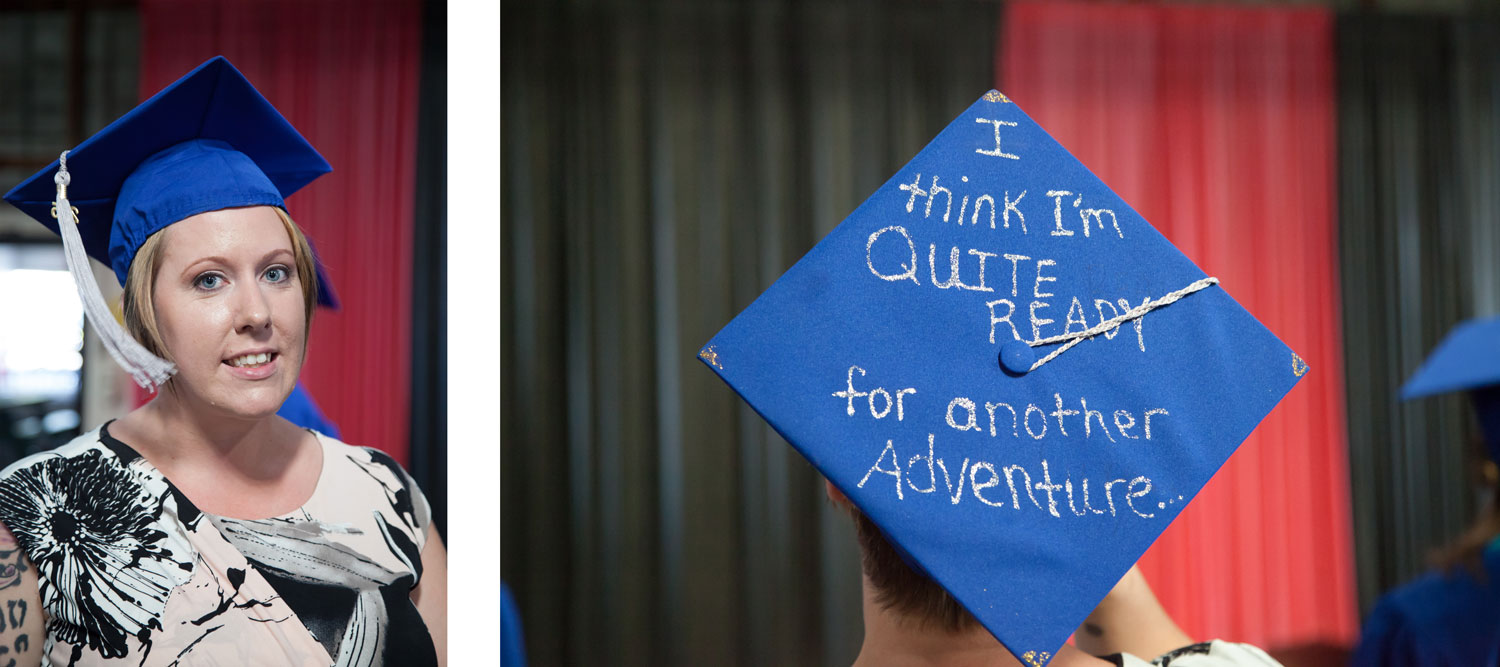 I
think I'm
QUITE
READY
for another
Adventure...